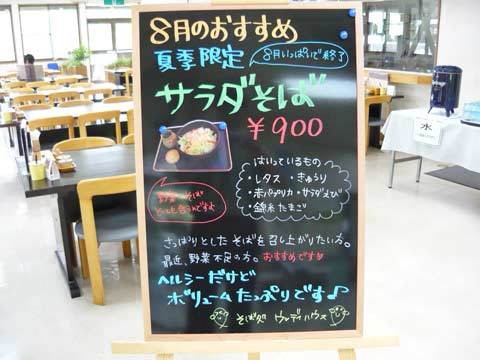 8月のおすすめ
夏季限定
8月いっぱいで終了
サラダそば
¥900
はいっているもの
・レタス ・きゅうり
・赤パプリカ ・サラダえび
・錦糸たまご
野菜とそば
とっても合うんですよ
さっぱりとしたそばを召し上がりたい方。
最近、野菜不足の方。おすすめです
ヘルシーだけど
ボリュームたっぷりです♪
そば処 ウッディハウス
水